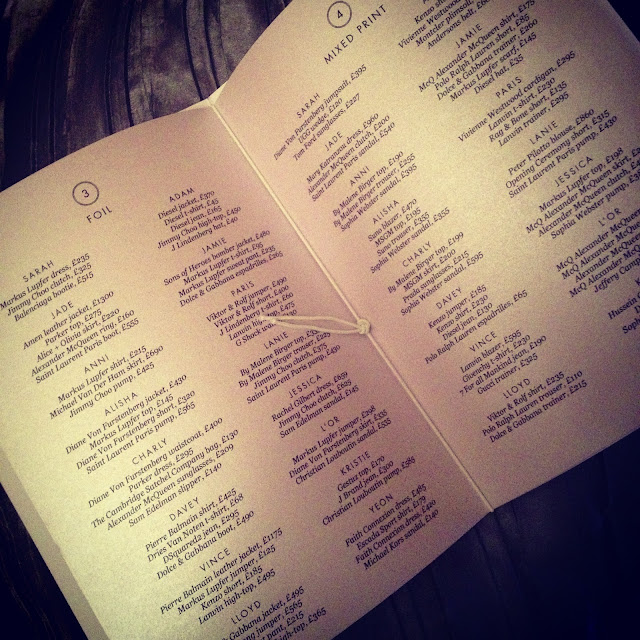 3
FOIL
SARAH
Markus Lupfer dress, £235
Jimmy Choo clutch, £325
Balenciaga boots, £515
JADE
Amen leather jacket, £1500
Parker top, £275
Alice + Olivia skirt, £220
Alexander McQueen ring, £160
Saint Laurent Paris boots, £555
ANNI
Markus Lupfer shirt, £225
Michael Van Der Ham skirt, £690
Jimmy Choo pump, £425
ALISHA
Diane Von Furstenberg jacket, £430
Markus Lupfer top, £145
Diane Von Furstenberg short, £220
Saint Laurent Paris pump, £365
CHARLY
Diane Von Furstenberg waistcoat, £400
Parker dress, £295
The Cambridge Satchel Company bag, £130
Alexander McQueen sunglasses, £209
Sam Edelman slipper, £140
DAVEY
Pierre Balmain shirt, £425
Dries Van Noten t-shirt, £68
DSquared2 jean, £295
Dolce & Gabbana boot, £490
VINCE
Pierre Balmain leather jacket, £1175
Markus Lupfer jumper, £125
Kenzo short, £185
Lanvin high-top, £495
LLOYD
Gabbana jacket, £695
jumper, £565
pant, £215
high-top, £365
ADAM
Diesel jacket, £370
Diesel t-shirt, £45
Diesel jean, £165
Jimmy Choo high-top, £450
J Lindenberg hat, £40
JAMIE
Sons of Heroes bomber jacket, £480
Markus Lupfer t-shirt, £95
Markus Lupfer sweat pant, £235
Dolce & Gabbana espadrilles, £265
PARIS
Viktor & Rolf jumper, £490
Viktor & Rolf short, £400
J Lindenberg
Lanvin
G Shock
LANIE
By Malene Birger top,
By Malene Birger
Jimmy Choo clutch, £375
Saint Laurent Paris pump, £430
JESSICA
Rachel Gilbert dress, £659
Jimmy Choo clutch, £375
Sam Edelman sandal, £145
L'OR
Markus Lupfer jumper, £298
Diane Von Furstenberg short, £335
Christian Louboutin sandal, £555
KRISTIE
Gestuz top, £170
J Brand jean, £300
Christian Louboutin pump, £385
YEON
Faith Connexion dress, £485
Escada Sport shirt, £179
Faith Connexion dress, £485
Michael Kors sandal, £140
4
MIXED PRINT
SARAH
Diane Von Furstenberg jumpsuit, £395
YCO bag, £120
Tom Ford sunglasses, £227
JADE
Mary Katrantzou dress, £960
Alexander McQueen clutch, £200
Saint Laurent Paris sandal, £540
ANNI
By Malene Birger top, £190
By Malene Birger trouser, £255
Sophia Webster sandal, £395
ALISHA
Suno blazer, £470
MSGM top, £195
Suno trouser, £255
Sophia Webster sandal, £355
CHARLY
By Malene Birger top, £199
MSGM short, £210
Prada sunglasses, £215
Sophia Webster sandal, £595
DAVEY
Kenzo jacket, £285
Diesel jean, £130
Polo Ralph Lauren espadrilles, £65
VINCE
Lanvin blazer, £595
Givenchy t-shirt, £230
7 For all Mankind jean, £190
Gucci trainer, £285
LLOYD
Viktor & Rolf shirt, £255
Polo Ralph Lauren trouser, £110
Dolce & Gabbana trainer, £215
Kenzo
Vivienne Westwood
Montblanc
Anderson's belt,
JAMIE
McQ Alexander McQueen shirt, £175
Polo Ralph Lauren short, £85
Dolce & Gabbana trainer, £260
Markus Lupfer scarf, £145
Diesel hat, £35
PARIS
Vivienne Westwood cardigan, £295
Lanvin t-shirt, £240
Rag & Bone short, £135
Lanvin trainer, £295
LANIE
Peter Pilotto blouse, £860
Opening Ceremony short, £315
Saint Laurent Paris pump, £430
JESSICA
Markus Lupfer top, £198
McQ Alexander McQueen
Sophia Webster pump,
L'OR
McQ Alexander
McQ Alexander
McQ Alexander
Jeffery